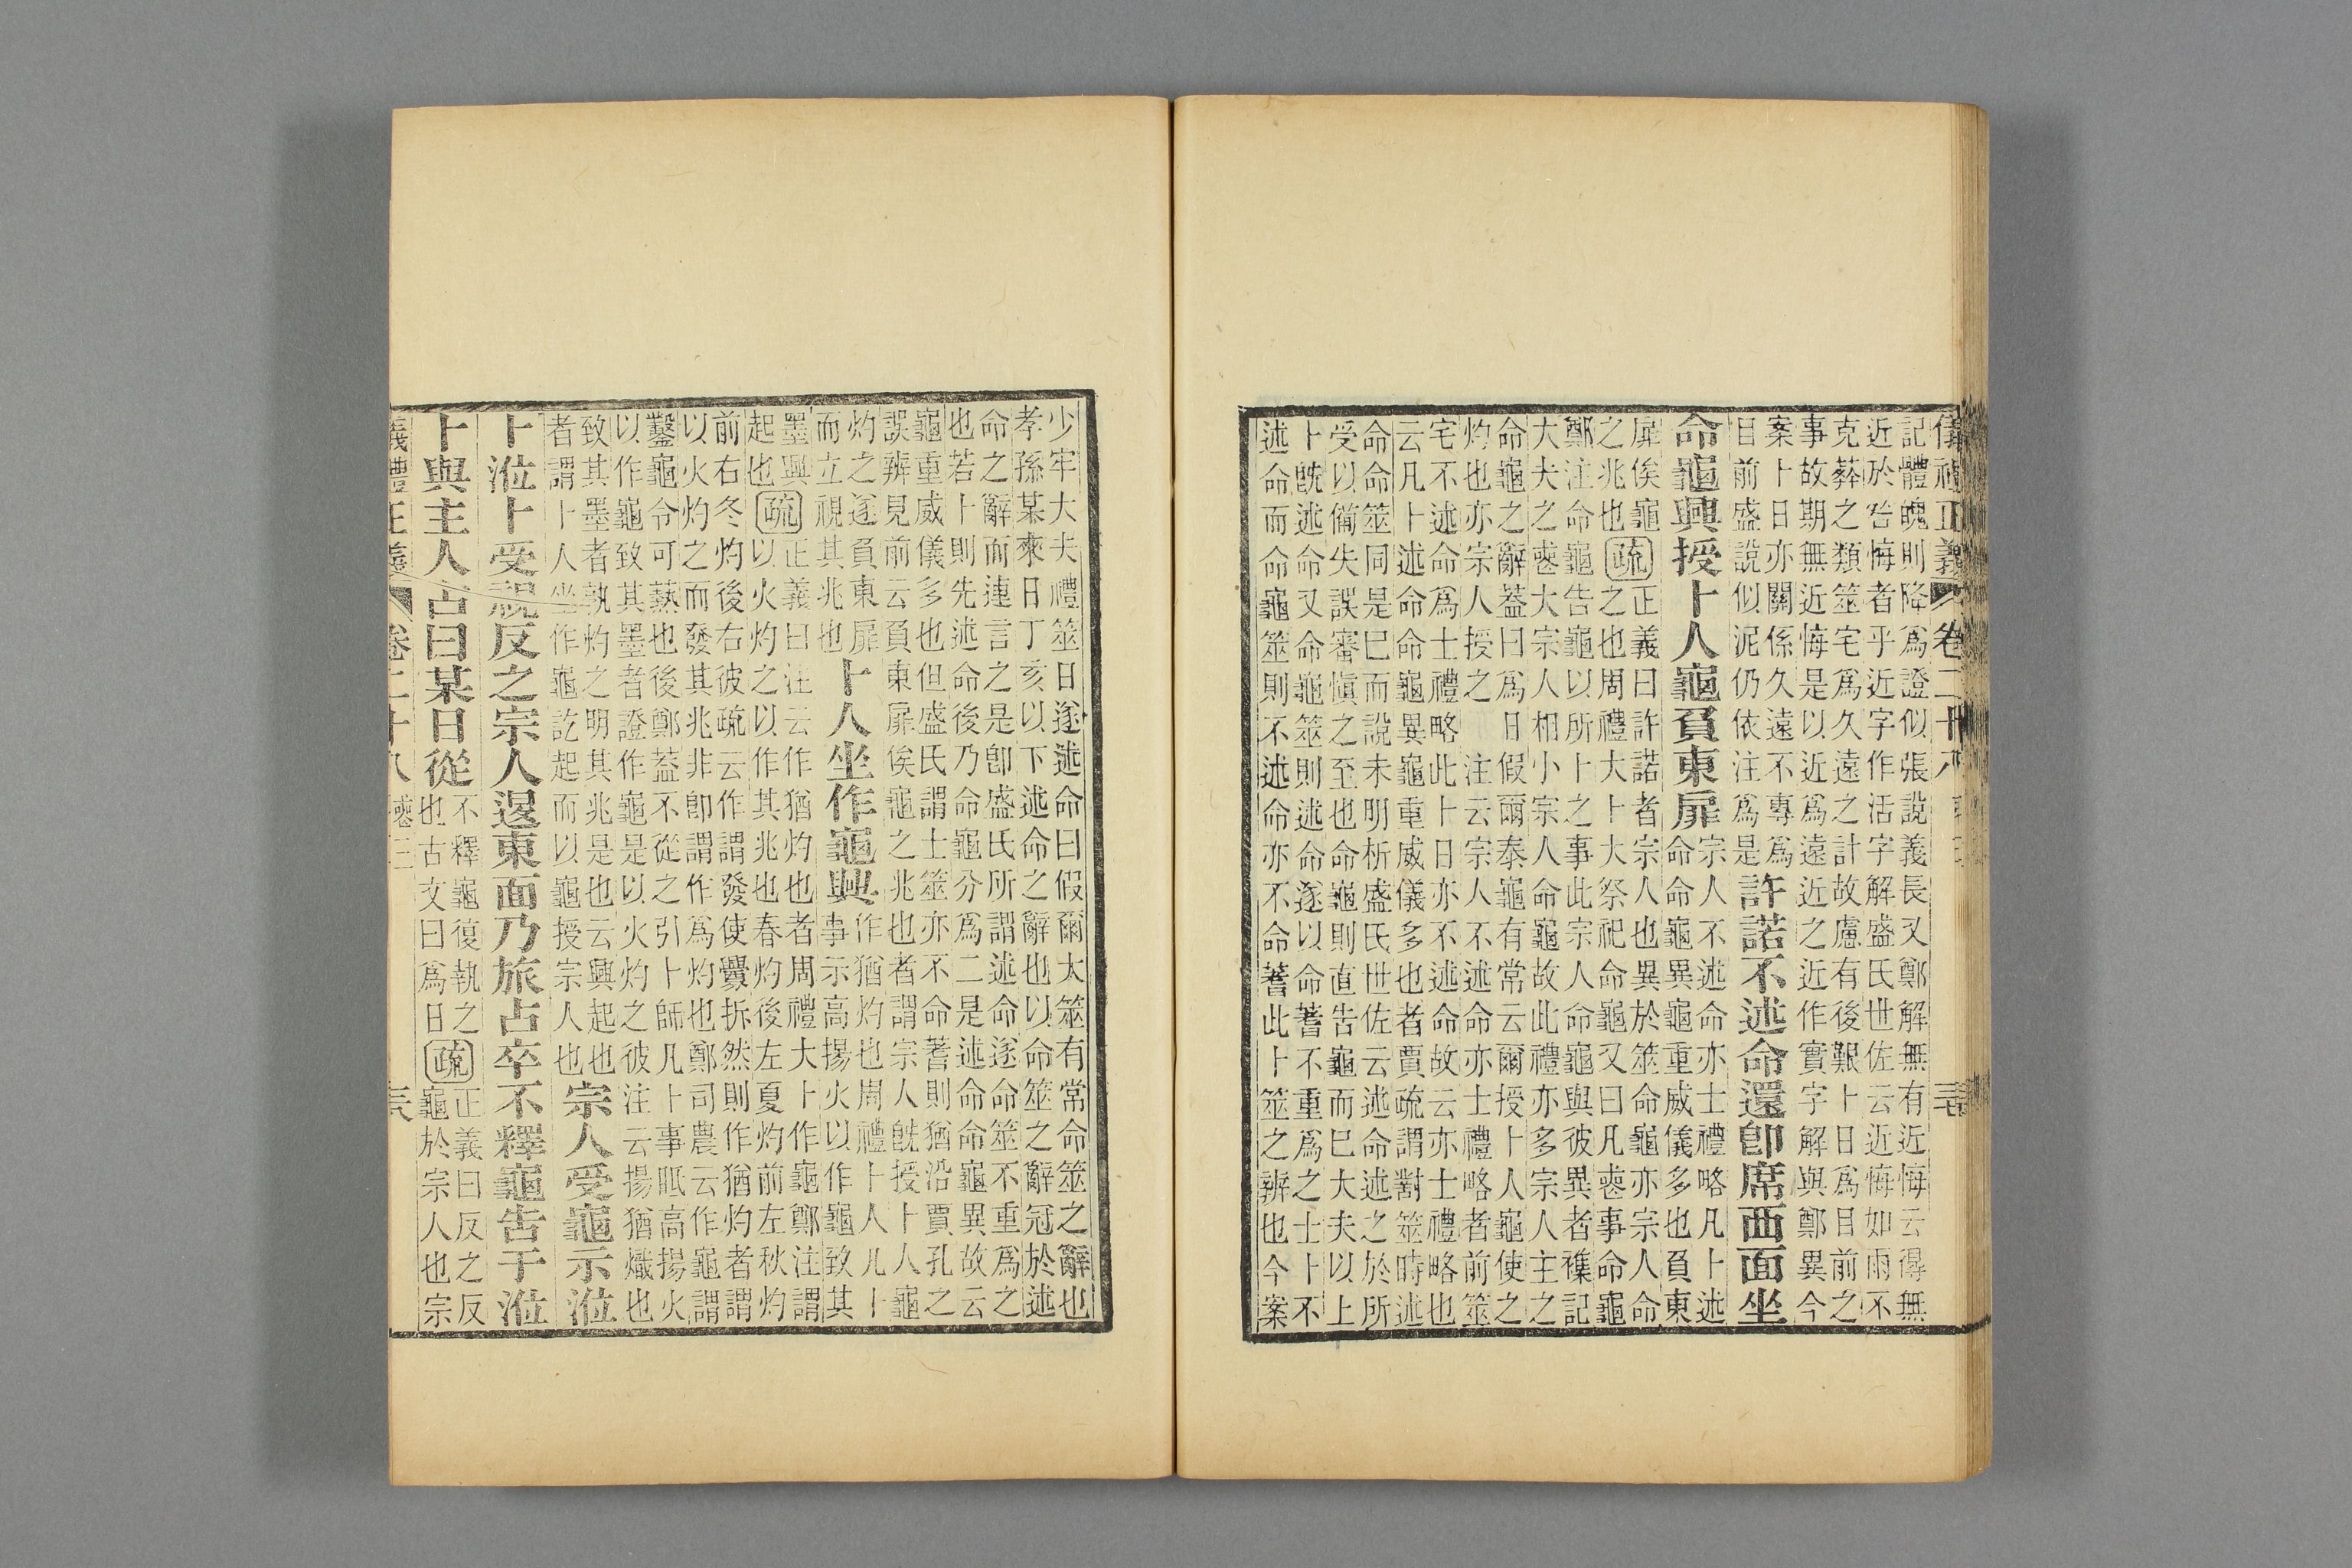 儀禮正義 卷二十八
記體魄則降爲證似張說義長又鄭解無有近悔云得無
近於咎悔者乎近字作活字解盛氏世佐云近悔如雨不
克葬之類筮宅爲久遠之計故慮有後艱卜日爲目前之
事故期無近悔是以近爲遠近之近作實字解與鄭異今
案卜日亦關係久遠不專爲
目前盛說似泥仍依注爲是
許諾不述命還卽席西面坐
命龜興授卜人龜負東扉
宗人不述命亦士禮略凡卜述
命命龜異龜重威儀多也負東
扉俟龜
之兆也
疏
正義曰許諾者宗人也異於筮命龜亦宗人命
之也周禮大卜大祭祀命龜又曰凡喪事命龜
鄭注命龜告龜以所卜之事此宗人命龜與彼異者襍記
大夫之喪大宗人相小宗人命龜故此禮亦多宗人主之
命龜之辭葢曰爲日假爾泰龜有常云爾授卜人龜使之
灼也亦宗人授之 注云宗人不述命亦士禮略者前筮
宅不述命爲士禮略此卜日亦不述命故云亦士禮略也
云凡卜述命命龜異龜重威儀多也者賈疏謂對筮時述
命命筮同是巳而說未明析盛氏世佐云述命述之於所
受以備失誤審愼之至也命龜則直告龜而巳大夫以上
卜旣述命又命龜筮則述命遂以命蓍不重爲之士卜不
述命而命龜筮則不述命亦不命蓍此卜筮之辨也今案
少牢大夫禮筮日遂述命曰假爾大筮有常命筮之辭也
孝孫某來日丁亥以下述命之辭也以命筮之辭冠於述
命之辭而連言之是卽盛氏所謂述命遂命筮不重爲之
也若卜則先述命後乃命龜分爲二是述命命龜異故云
龜重威儀多也但盛氏謂士筮亦不命蓍則猶沿賈孔之
誤辨見前云負東扉俟龜之兆也者謂宗人旣授卜人龜
灼之遂負東扉
而立視其兆也
卜人坐作龜興
作猶灼也周禮卜人凡卜
事示高揚火以作龜致其
墨興
起也
疏
正義曰注云作猶灼也者周禮大卜作龜鄭注謂
以火灼之以作其兆也春灼後左夏灼前左秋灼
前右冬灼後右彼疏云作謂發使釁拆然則作猶灼者謂
以火灼之而發其兆非卽謂作爲灼也鄭司農云作龜謂
鑿龜令可爇也後鄭葢不從之引卜師凡卜事眡高揚火
以作龜致其墨者證作龜是以火灼之彼注云揚猶熾也
致其墨者孰灼之明其兆是也云興起也
者謂卜人坐作龜訖起而以龜授宗人也
宗人受龜示涖
卜涖卜受視反之宗人退東面乃旅占卒不釋龜告于涖
卜與主人占曰某日從
不釋龜復執之
也古文曰爲日
疏
正義曰反之反
龜於宗人也宗
儀禮正義 卷二十八 喪三